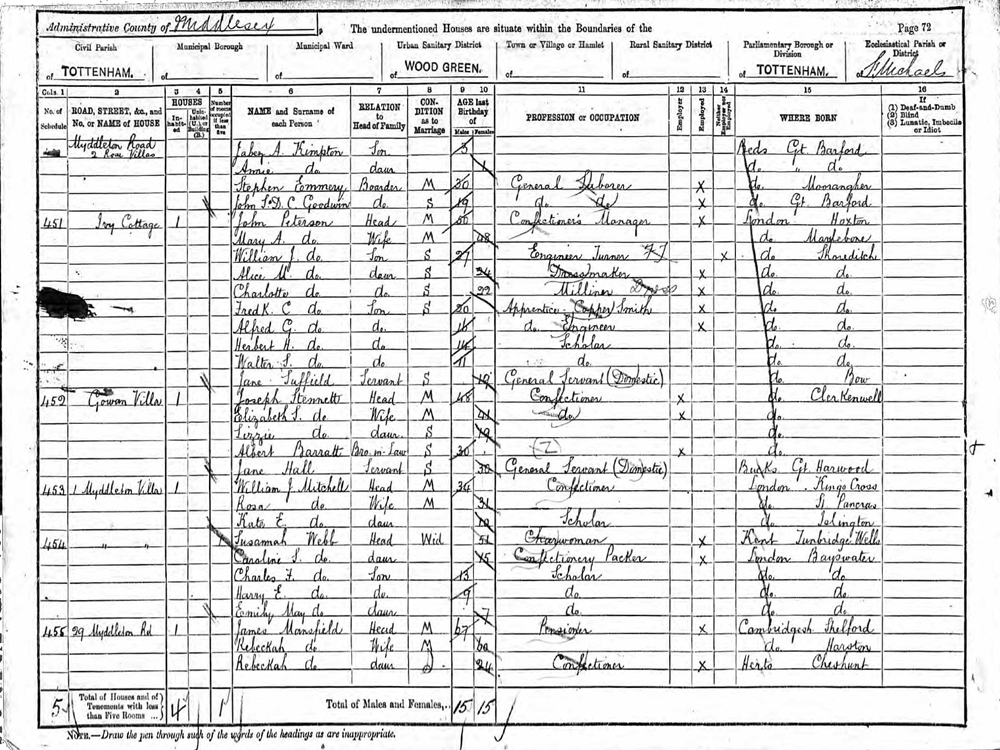 Administrative County of Middlesex, The undermentioned Houses are situate within the Boundaries of the Page 72
Civil Parish Municipal Borough Municipal Ward Urban Sanitary District Town or Village or Hamlet Rural Sanitary District Parliamentary Borough or Division Ecclesiastical Parish or District
of TOTTENHAM. of of of WOOD GREEN. of of of TOTTENHAM. of St Michaels
Cols. 1 2 3 4 5 6 7 8 9 10 11 12 13 14 15 16
No. of Schedule ROAD, STREET, &c., and No. or NAME of HOUSE HOUSES Inhabited Uninhabited (U.) or Building (B.) Number of rooms occupied if less than five NAME and Surname of each Person RELATION to Head of Family CONDITION as to Marriage AGE last Birthday of Males Females PROFESSION or OCCUPATION Employer Employed Neither Employer nor Employed WHERE BORN If (1) Deaf-and-Dumb (2) Blind (3) Lunatic, Imbecile or Idiot
Myddleton Road 2 Rose Villas Jabez A. Kimpton Son 3 Beds Gt. Barford
Annie do. daur 1 do. " do.
Stephen Emmery Boarder M 30 General Laborer X do.
John S. D. C. Goodwin do. S 19 do. do X do. Gt. Barford
451 Ivy Cottage 1 John Peterson Head M 50 Confectioner's Manager X London Hoxton
Mary A. do. Wife M 48 do Marylebone
William J. do. Son S 27 Engineer Turner X do. Shoreditch
Alice M. do. daur S 24 Dressmaker X do. do.
Charlotte do. do. S 22 Milliner X do. do.
Fredk. C do. Son S 20 Apprentice Copper Smith X do. do.
Alfred G. do. do. 16 do. Engineer X do. do.
Herbert H. do. do. 14 Scholar do. do.
Walter S. do. do. 11 do. do. do.
Jane Suffield Servant S 19 General Servant (Domestic) do. Bow
452 Gowan Villa 1 Joseph Stennett Head M 48 Confectioner X do. Clerkenwell
Elizabeth S. do. Wife M 41 do X do.
Lizzie do. daur. S 19 do.
Albert Barratt Bro. in Law S 30 X do.
Jane Hall Servant S 30 General Servant (Domestic) Bucks Gt. Harwood
453 1 Myddleton Villa 1 William J. Mitchell Head M 34 Confectioner London Kings Cross
Rosa do. Wife M 31 do. St Pancras
Kate E. do. daur 10 Scholar do. Islington
454 " " 1 Susannah Webb Head Wid 51 Charwoman X Kent Tunbridge Wells
Caroline S. do. daur 15 Confectionery Packer X London Bayswater
Charles F. do. Son 13 Scholar do. do.
Harry E. do. do. 9 do. do. do.
Emily May do. daur 7 do. do. do.
455 29 Myddleton Rd 1 James Mansfield Head M 67 Pensioner X Cambridgesh Shelford
Rebeckah do. Wife M 60 do. Harston
Rebeckah do. daur 24 Confectioner X Herts Cheshunt
5 Total of Houses and of Tenements with less than Five Rooms ... 4 1 Total of Males and Females,.. 15 15
NOTE.—Draw the pen through such of the words of the headings as are inappropriate.